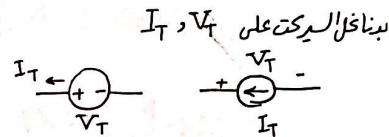 بدناخل السيركت على V_T و I_T
I_T ← + - V_T
V_T + ← - I_T